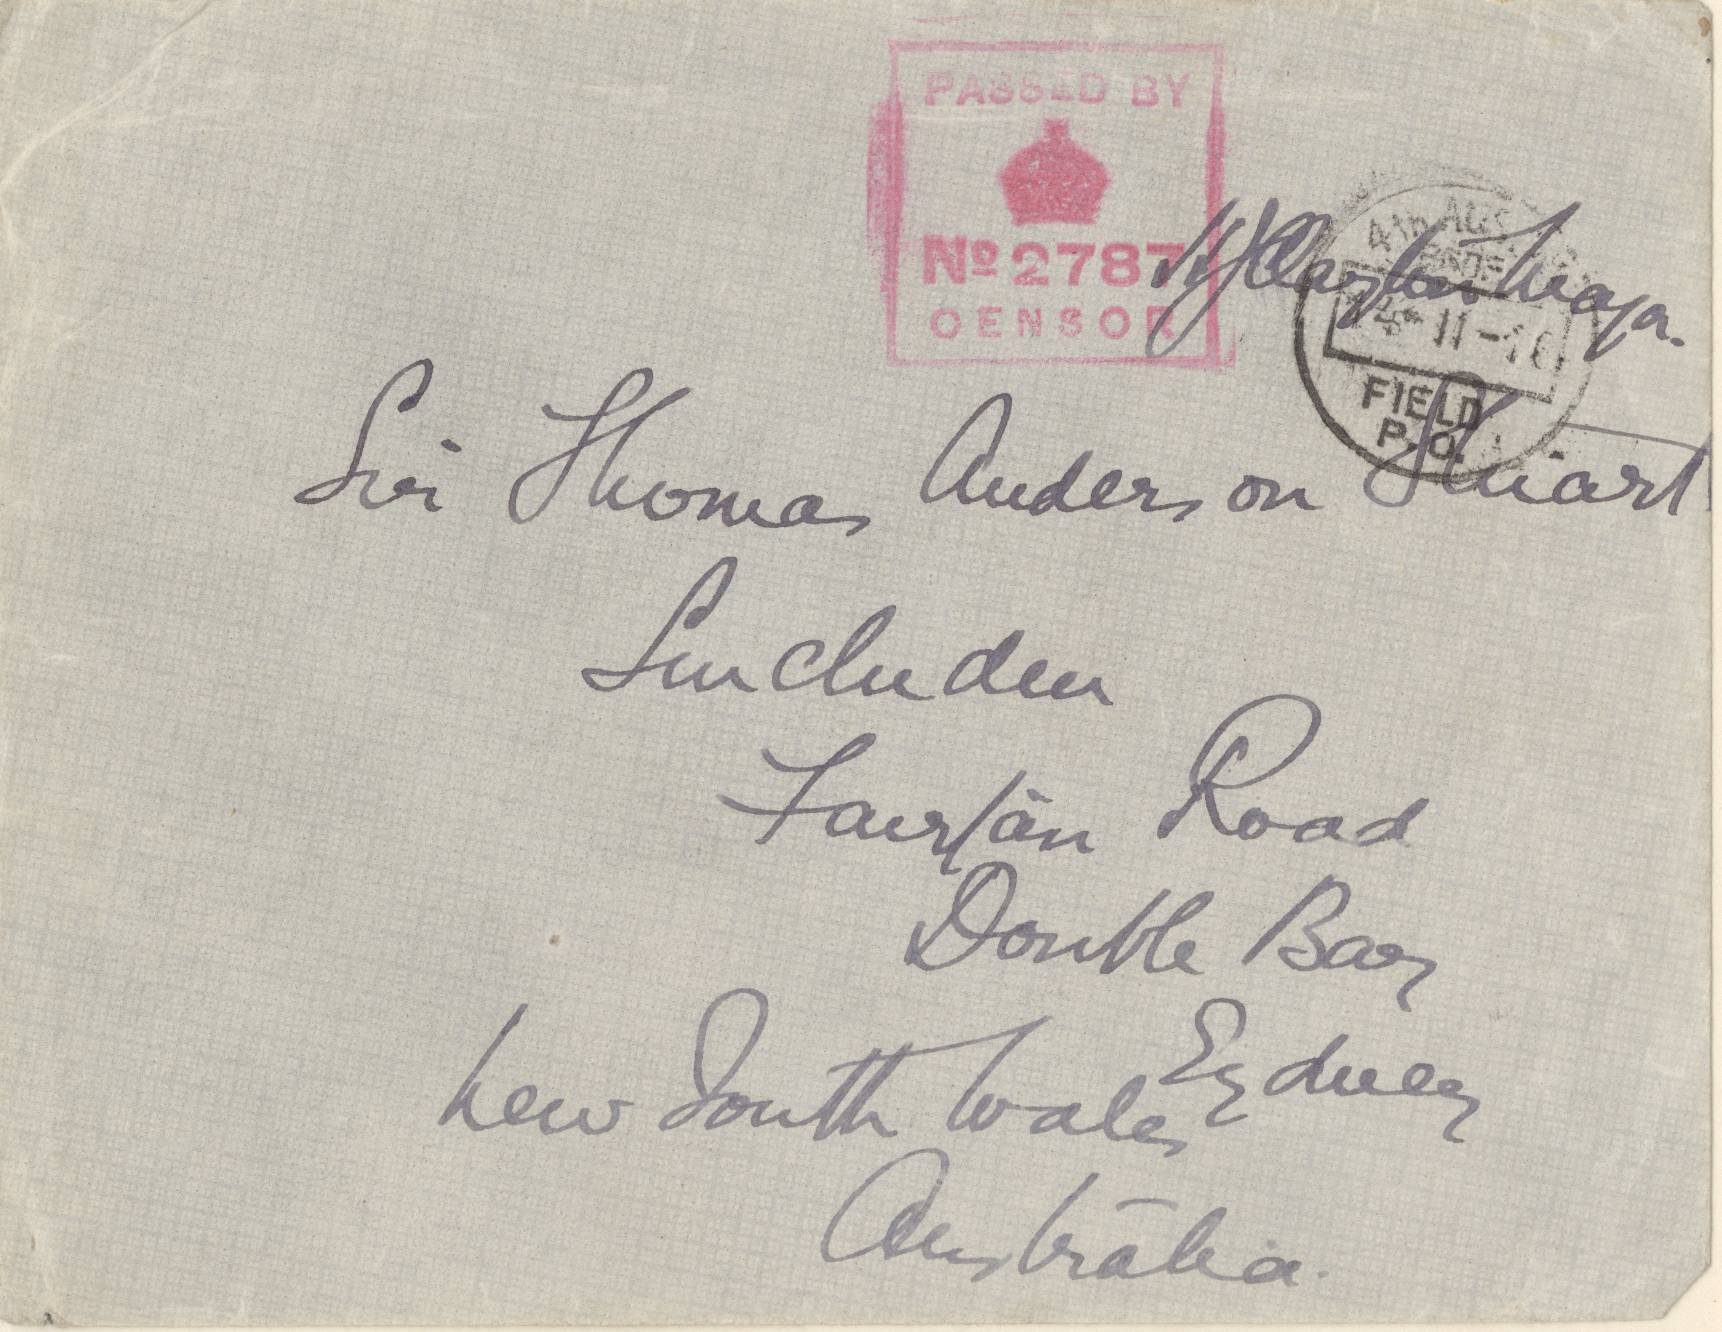 PASSED BY
No 2787
CENSOR
H J Clayton. Major.
4TH AUS
-11-16
FIELD
P.O.
Sir Thomas Anderson Stuart
Lincluden
Fairfax Road
Double Bay
Sydney
New South Wales
Australia.